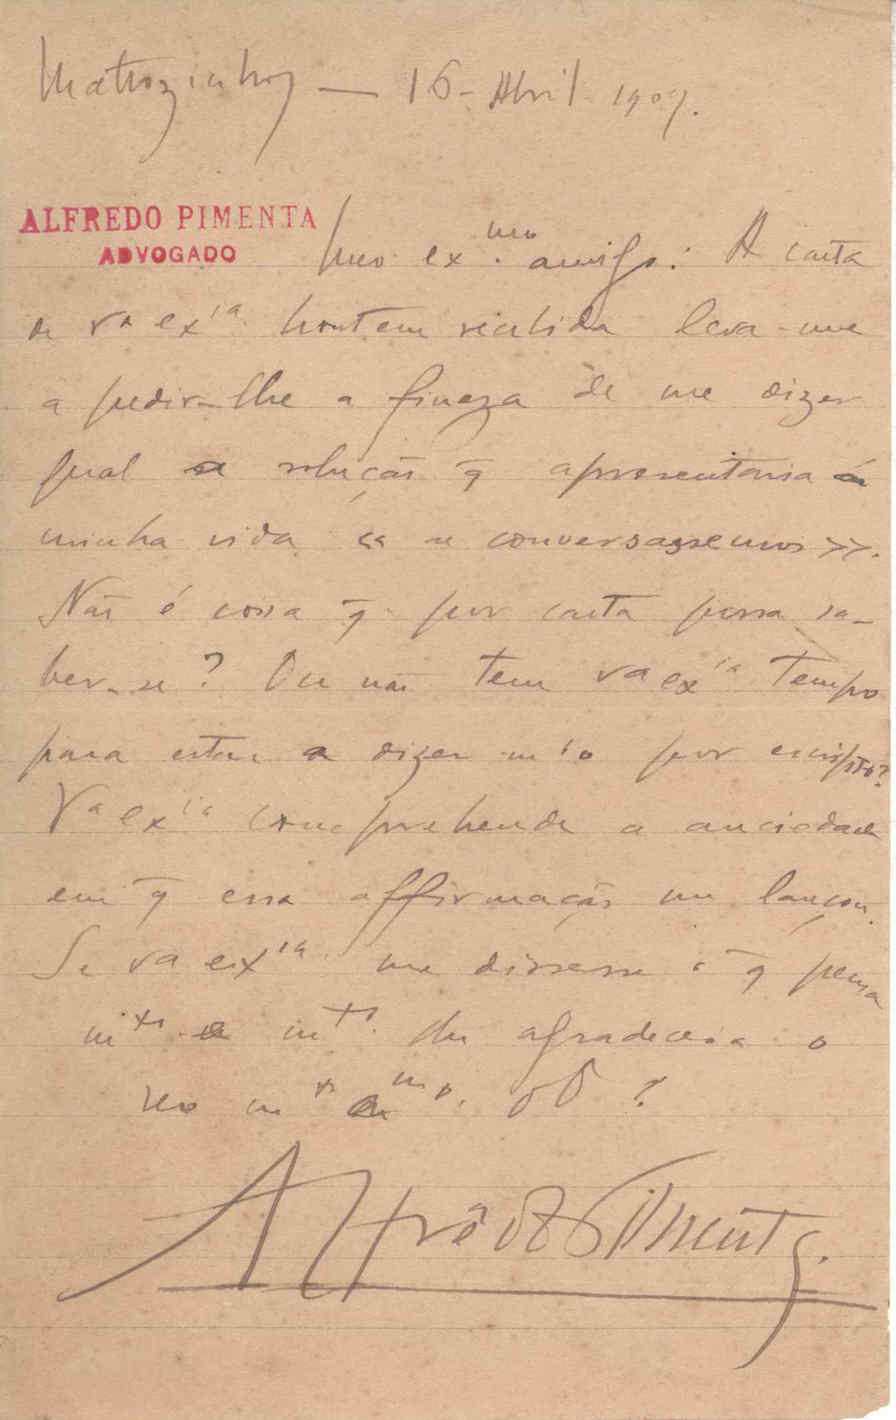 Mattozinhos — 16 - Abril - 1909.
ALFREDO PIMENTA
ADVOGADO
Meu ex.mo amigo: A carta
de va exia hontem recebida leva-me
a pedir-lhe a fineza de me dizer
qual a solução q̄ apresentaria á
minha vida «se conversassemos».
Não é coisa q̄ por carta possa sa-
ber-se? Ou não tem va exia tempo
para estar a dizer-m'o por escripto?
Va exia comprehende a anciedade
em q̄ essa affirmação me lançou.
Se va exia me dissesse o q̄ pensa
mto e mto lhe agradeceria o
seo mto amo. obº
Alfrêdo Pimenta.